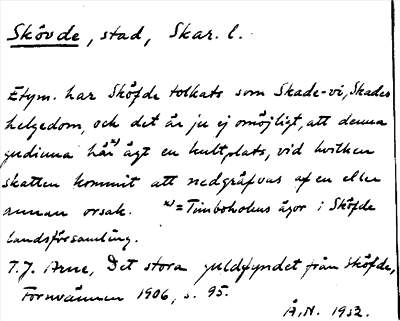 Skövde, stad, Skar. l.
Etym. har Sköfde tolkats som Skade-vi, Skades
helgedom, och det är ju ej omöjligt, att denna
gudinna här x) ägt en kultplats, vid hvilken
skatten kommit att nedgräfvas af en eller
annan orsak. x) = Timboholms ägor i Sköfde
landsförsamling.
T.J. Arne, Det stora guldfyndet från Sköfde,
Fornvännen 1906, s. 95.
Å.N. 1932.